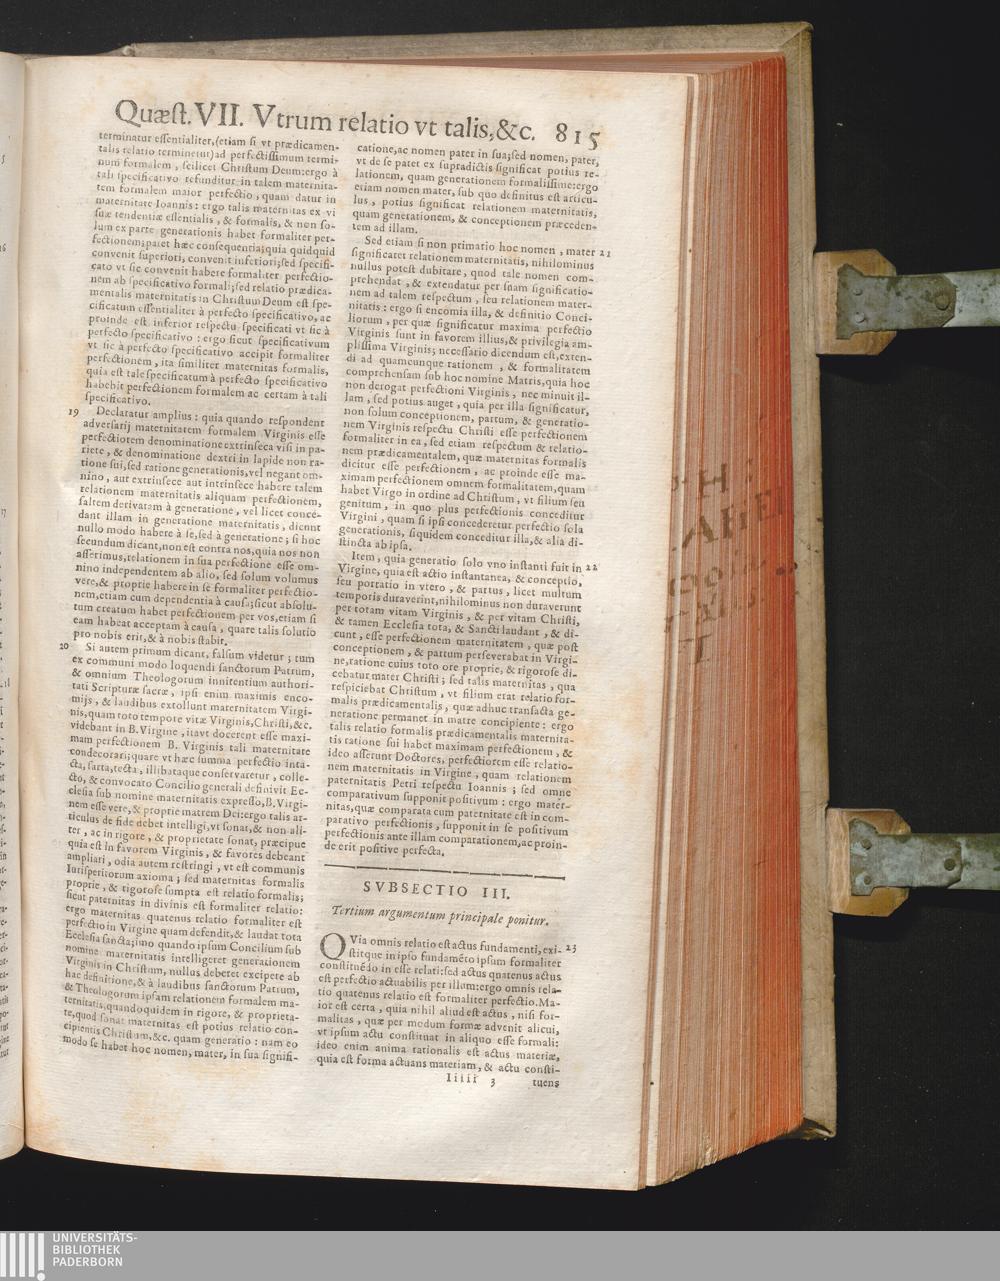 Quæst. VII. Vtrum relatio vt talis, &c. 815
terminatur essentialiter, (etiam si vt prædicamen-
talis relatio terminetur) ad perfectissimum termi-
num formalem, scilicet Christum Deum: ergo à
tali specificativo refunditur in talem maternita-
tem formalem maior perfectio, quam datur in
maternitate Ioannis: ergo talis maternitas ex vi
suæ tendentiæ essentialis, & formalis, & non so-
lum ex parte generationis habet formaliter per-
fectionem; patet hæc consequentia; quia quidquid
convenit superiori, convenit inferiori; sed specifi-
cato vt sic convenit habere formaliter perfectio-
nem ab specificativo formali; sed relatio prædica-
mentalis maternitatis in Christum Deum est spe-
cificatum essentialiter à perfecto specificativo, ac
proinde est inferior respectu specificati vt sic à
perfecto specificativo: ergo sicut specificativum
vt sic à perfecto specificativo accipit formaliter
perfectionem, ita similiter maternitas formalis,
quia est tale specificatum à perfecto specificativo
habebit perfectionem formalem ac certam à tali
specificativo.
19 Declaratur amplius: quia quando respondent
adversarij maternitatem formalem Virginis esse
perfectiorem denominatione extrinseca visi in pa-
riete, & denominatione dextri in lapide non ra-
tione sui, sed ratione generationis, vel negant om-
nino, aut extrinsece aut intrinsece habere talem
relationem maternitatis aliquam perfectionem,
saltem derivatam à generatione, vel licet conce-
dant illam in generatione maternitatis, dicunt
nullo modo habere à se, sed à generatione; si hoc
secundum dicant, non est contra nos, quia nos non
asserimus, relationem in sua perfectione esse om-
nino independentem ab alio, sed solum volumus
vere, & proprie habere in se formaliter perfectio-
nem, etiam cum dependentia à causa; sicut absolu-
tum creatum habet perfectionem per vos, etiam si
eam habeat acceptam à causa, quare talis solutio
pro nobis erit, & à nobis stabit.
20 Si autem primum dicant, falsum videtur; tum
ex communi modo loquendi sanctorum Patrum,
& omnium Theologorum innitentium authori-
tati Scripturæ sacræ, ipsi enim maximis enco-
mijs, & laudibus extollunt maternitatem Virgi-
nis, quam toto tempore vitæ Virginis, Christi, &c.
videbant in B. Virgine, itavt docerent esse maxi-
mam perfectionem B. Virginis tali maternitate
condecorari; quare vt hæc summa perfectio inta-
cta, sarta, tecta, illibataque conservaretur, colle-
cto, & convocato Concilio generali definivit Ec-
clesia sub nomine maternitatis expresso, B. Virgi-
nem esse vere, & proprie matrem Dei: ergo talis ar-
ticulus de fide debet intelligi, vt sonat, & non ali-
ter, ac in rigore, & proprietate sonat, præcipue
quia est in favorem Virginis, & favores debeant
ampliari, odia autem restringi, vt est communis
Iurisperitorum axioma; sed maternitas formalis
proprie, & rigorose sumpta est relatio formalis;
sicut paternitas in divinis est formaliter relatio:
ergo maternitas quatenus relatio formaliter est
perfectio in Virgine quam defendit, & laudat tota
Ecclesia sancta; imo quando ipsum Concilium sub
nomine maternitatis intelligeret generationem
Virginis in Christum, nullus deberet excipere ab
hac definitione, & à laudibus sanctorum Patrum,
& Theologorum ipsam relationem formalem ma-
ternitatis, quandoquidem in rigore, & proprieta-
te, quod sonat maternitas est potius relatio con-
cipientis Christum, &c. quam generatio: nam eo
modo se habet hoc nomen, mater, in sua signifi-
catione, ac nomen pater in sua; sed nomen, pater,
vt de se patet ex supradictis significat potius re-
lationem, quam generationem formalissime: ergo
etiam nomen mater, sub quo definitus est articu-
lus, potius significat relationem maternitatis,
quam generationem, & conceptionem præceden-
tem ad illam.
Sed etiam si non primatio hoc nomen, mater 21
significaret relationem maternitatis, nihilominus
nullus potest dubitare, quod tale nomen com-
prehendat, & extendatur per suam significatio-
nem ad talem respectum, seu relationem mater-
nitatis: ergo si encomia illa, & definitio Conci-
liorum, per quæ significatur maxima perfectio
Virginis sunt in favorem illius, & privilegia am-
plissima Virginis; necessario dicendum est, exten-
di ad quamcunque rationem, & formalitatem
comprehensam sub hoc nomine Matris, quia hoc
non derogat perfectioni Virginis, nec minuit il-
lam, sed potius auget, quia per illa significatur,
non solum conceptionem, partum, & generatio-
nem Virginis respectu Christi esse perfectionem
formaliter in ea, sed etiam respectum & relatio-
nem prædicamentalem, quæ maternitas formalis
dicitur esse perfectionem, ac proinde esse ma-
ximam perfectionem omnem formalitatem, quam
habet Virgo in ordine ad Christum, vt filium seu
genitum, in quo plus perfectionis conceditur
Virgini, quam si ipsi concederetur perfectio sola
generationis, siquidem conceditur illa, & alia di-
stincta ab ipsa.
Item, quia generatio solo vno instanti fuit in 22
Virgine, quia est actio instantanea, & conceptio,
seu portatio in vtero, & partus, licet multum
temporis duraverint, nihilominus non duraverunt
per totam vitam Virginis, & per vitam Christi,
& tamen Ecclesia tota, & Sancti laudant, & di-
cunt, esse perfectionem maternitatem, quæ post
conceptionem, & partum perseverabat in Virgi-
ne, ratione cuius toto ore proprie, & rigorose di-
cebatur mater Christi; sed talis maternitas, qua
respiciebat Christum, vt filium erat relatio for-
malis prædicamentalis, quæ adhuc transacta ge-
neratione permanet in matre concipiente: ergo
talis relatio formalis prædicamentalis maternita-
tis ratione sui habet maximam perfectionem, &
ideo asserunt Doctores, perfectiorem esse relatio-
nem maternitatis in Virgine, quam relationem
paternitatis Petri respectu Ioannis; sed omne
comparativum supponit positivum: ergo mater-
nitas, quæ comparata cum paternitate est in com-
parativo perfectionis, supponit in se positivum
perfectionis ante illam comparationem, ac proin-
de erit positive perfecta.
SVBSECTIO III.
Tertium argumentum principale ponitur.
QVia omnis relatio est actus fundamenti, exi- 23
stitque in ipso fundamēto ipsum formaliter
constituēdo in esse relati: sed actus quatenus actus
est perfectio actuabilis per illum: ergo omnis rela-
tio quatenus relatio est formaliter perfectio. Ma-
ior est certa, quia nihil aliud est actus, nisi for-
malitas, quæ per modum formæ advenit alicui,
vt ipsum actu constituat in aliquo esse formali:
ideo enim anima rationalis est actus materiæ,
quia est forma actuans materiam, & actu consti-
Iiiii 3 tuens
UNIVERSITÄTS-
BIBLIOTHEK
PADERBORN